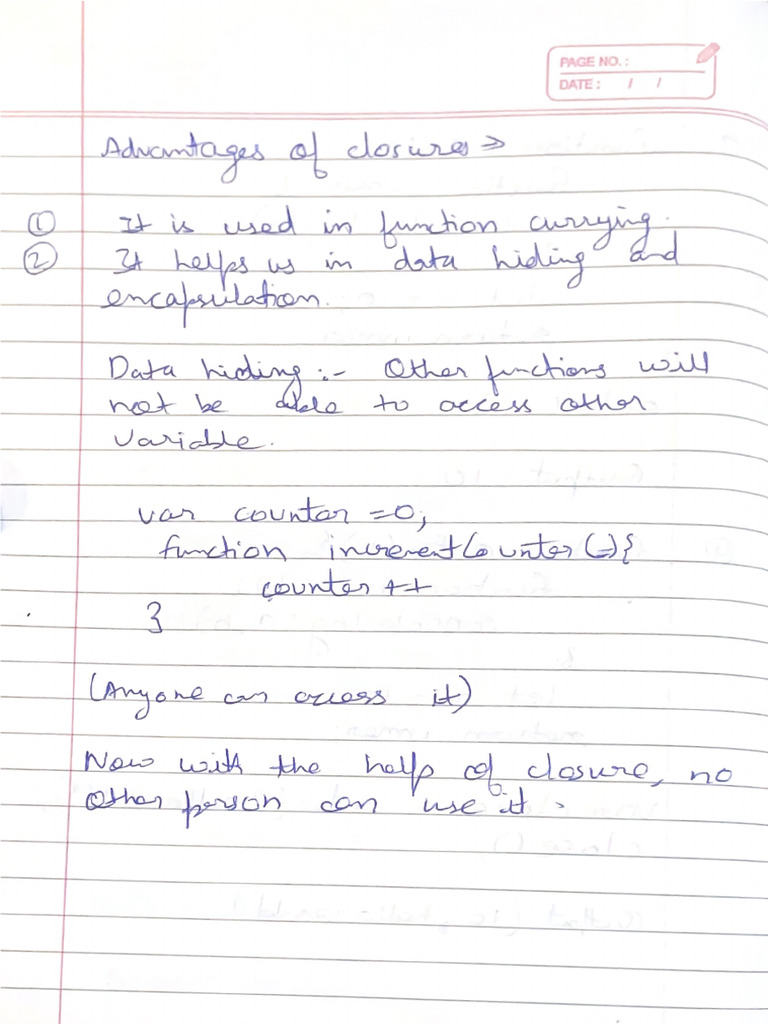 PAGE NO.:
DATE: / /
Advantages of closures ⇒
① It is used in function currying.
② It helps us in data hiding and
encapsulation.
Data hiding :- Other functions will
not be able to access other
variable.
var counter =0;
function incrementCounter(){
counter ++
}
(Anyone can access it)
Now with the help of closure, no
other person can use it.